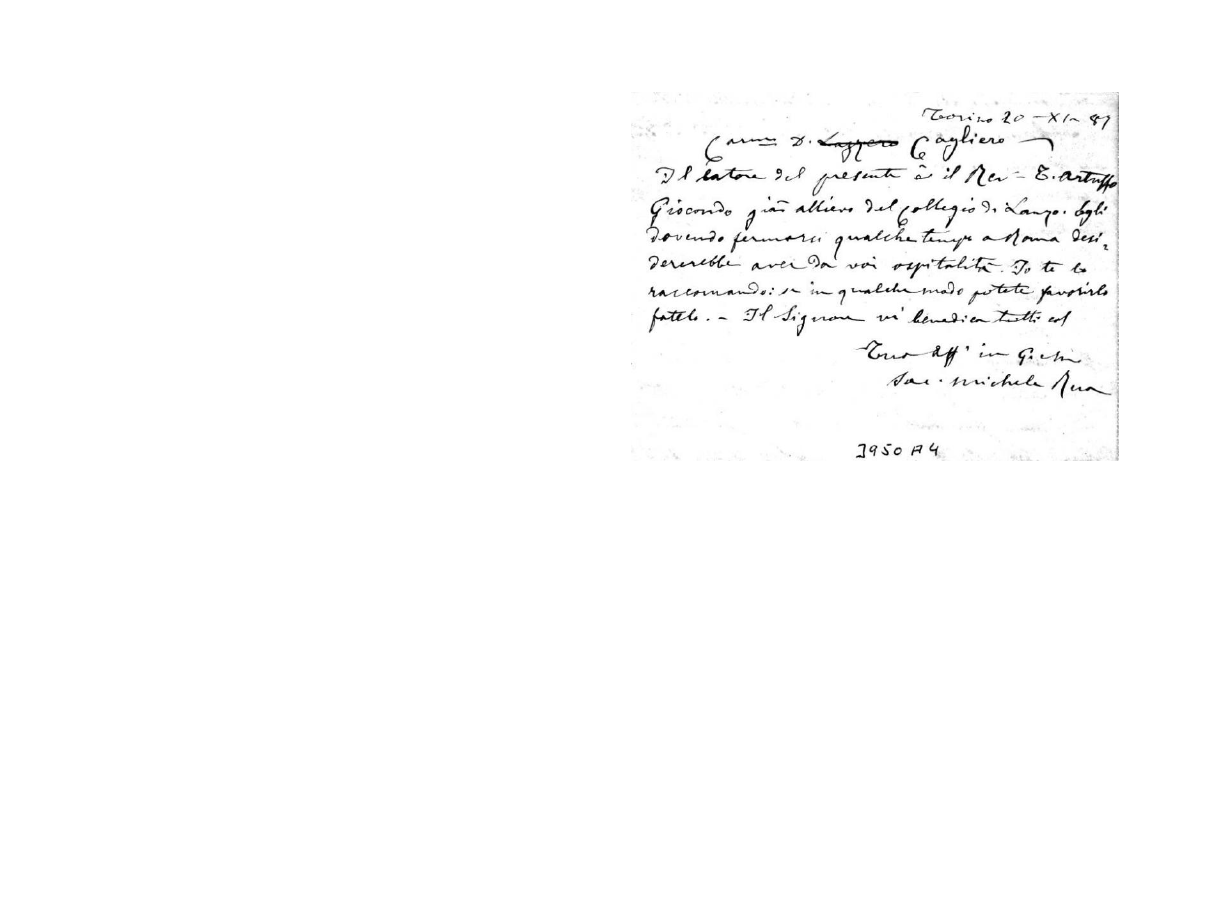 Torino 20 - XI - 87
Car.mo D. Lazzero Cagliero
Il latore del presente è il Rev. - T. Artuffo
Giocondo già allievo del collegio di Lanzo. Egli
dovendo fermarsi qualche tempo a Roma desi-
dererebbe aver da voi ospitalità. Io te lo
raccomando: se in qualche modo potete favorirlo
fatelo. - Il Signore vi benedica tutti col
Tuo Aff. in G.
Sac. Michele Rua
3950 A 4